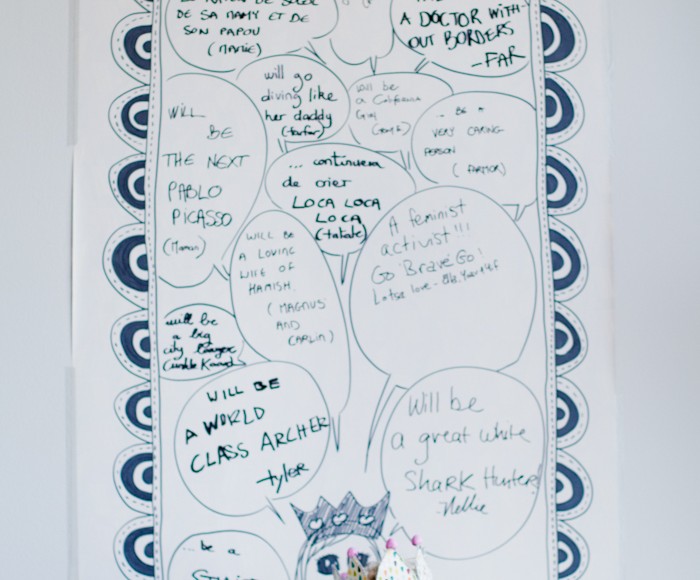 DE SA MAMY ET DE
SON PAPOU
(MAMIE)
A DOCTOR WITH-
OUT BORDERS
-FAR
will go
diving like
her daddy
(farfar)
will be
a California
Girl
BE A
VERY CARING
PERSON
(FARMOR)
WILL
BE
THE NEXT
PABLO
PICASSO
(Maman)
... continuera
de crier
LOCA LOCA
LOCA
(tatate)
A feminist
activist!!!
Go Brave Go!
Lotsa love-
WILL BE
A LOVING
WIFE OF
HAMISH.
(MAGNUS
AND
CARLIN)
will be
a big
city
(unkle
WILL BE
A WORLD
CLASS ARCHER
-tyler
Will be
a great white
Shark Hunter!
-Nellie
... be a